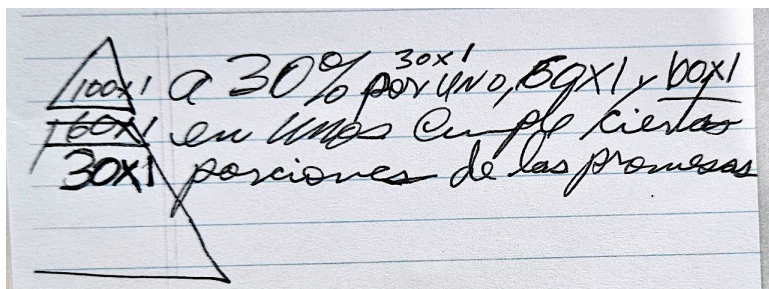 100x1 a 30% 30x1 por uno, 50x1, 60x1
60x1 en unos Cumple ciertas
30x1 porciones de las promesas